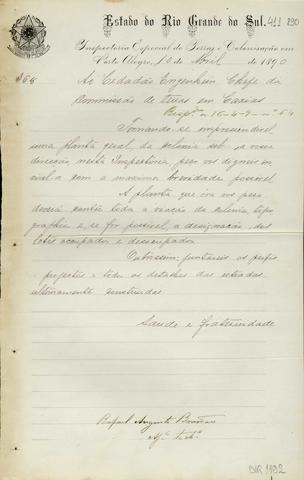 Estado do Rio Grande do Sul.
411 290
Inspectoria Especial de Terras e Colonisação em
Porto Alegre, 10 de Abril de 1890
Ao Cidadão Engenheiro Chefe da
Commissão de terras em Caxias
Tornando-se imprescindivel
uma planta geral da colonia sob a vossa
direcção nesta Inspectoria, peço vos digneis en
vial-a com a maxima brevidade possivel
A planta que ora vos peço
deverá conter toda a viação da colonia, topo
graphia e, se for possivel, a designação dos
lotes occupados e desoccupados
Outrossim juntareis os perfis
projectos e todos os detalhes das estradas
ultimamente construidas
Saude e fraternidade
Rafael Augusto
DIG 1892